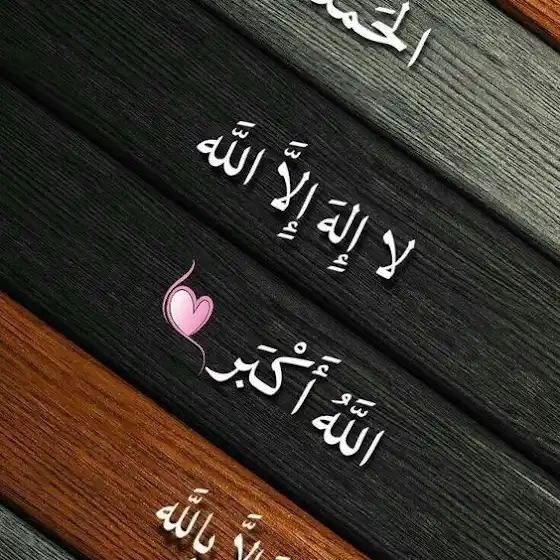 الحَمد
لا إِلهَ إِلَّا اللَّه
اللَّهُ أَكْبَر
إلَّا بِاللَّه